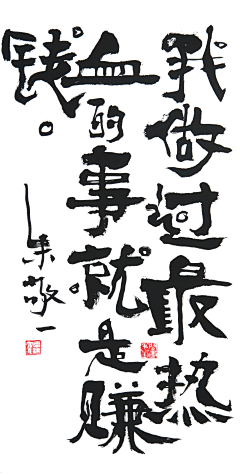 我做过最热
血的事就是赚
钱。
朱敬一